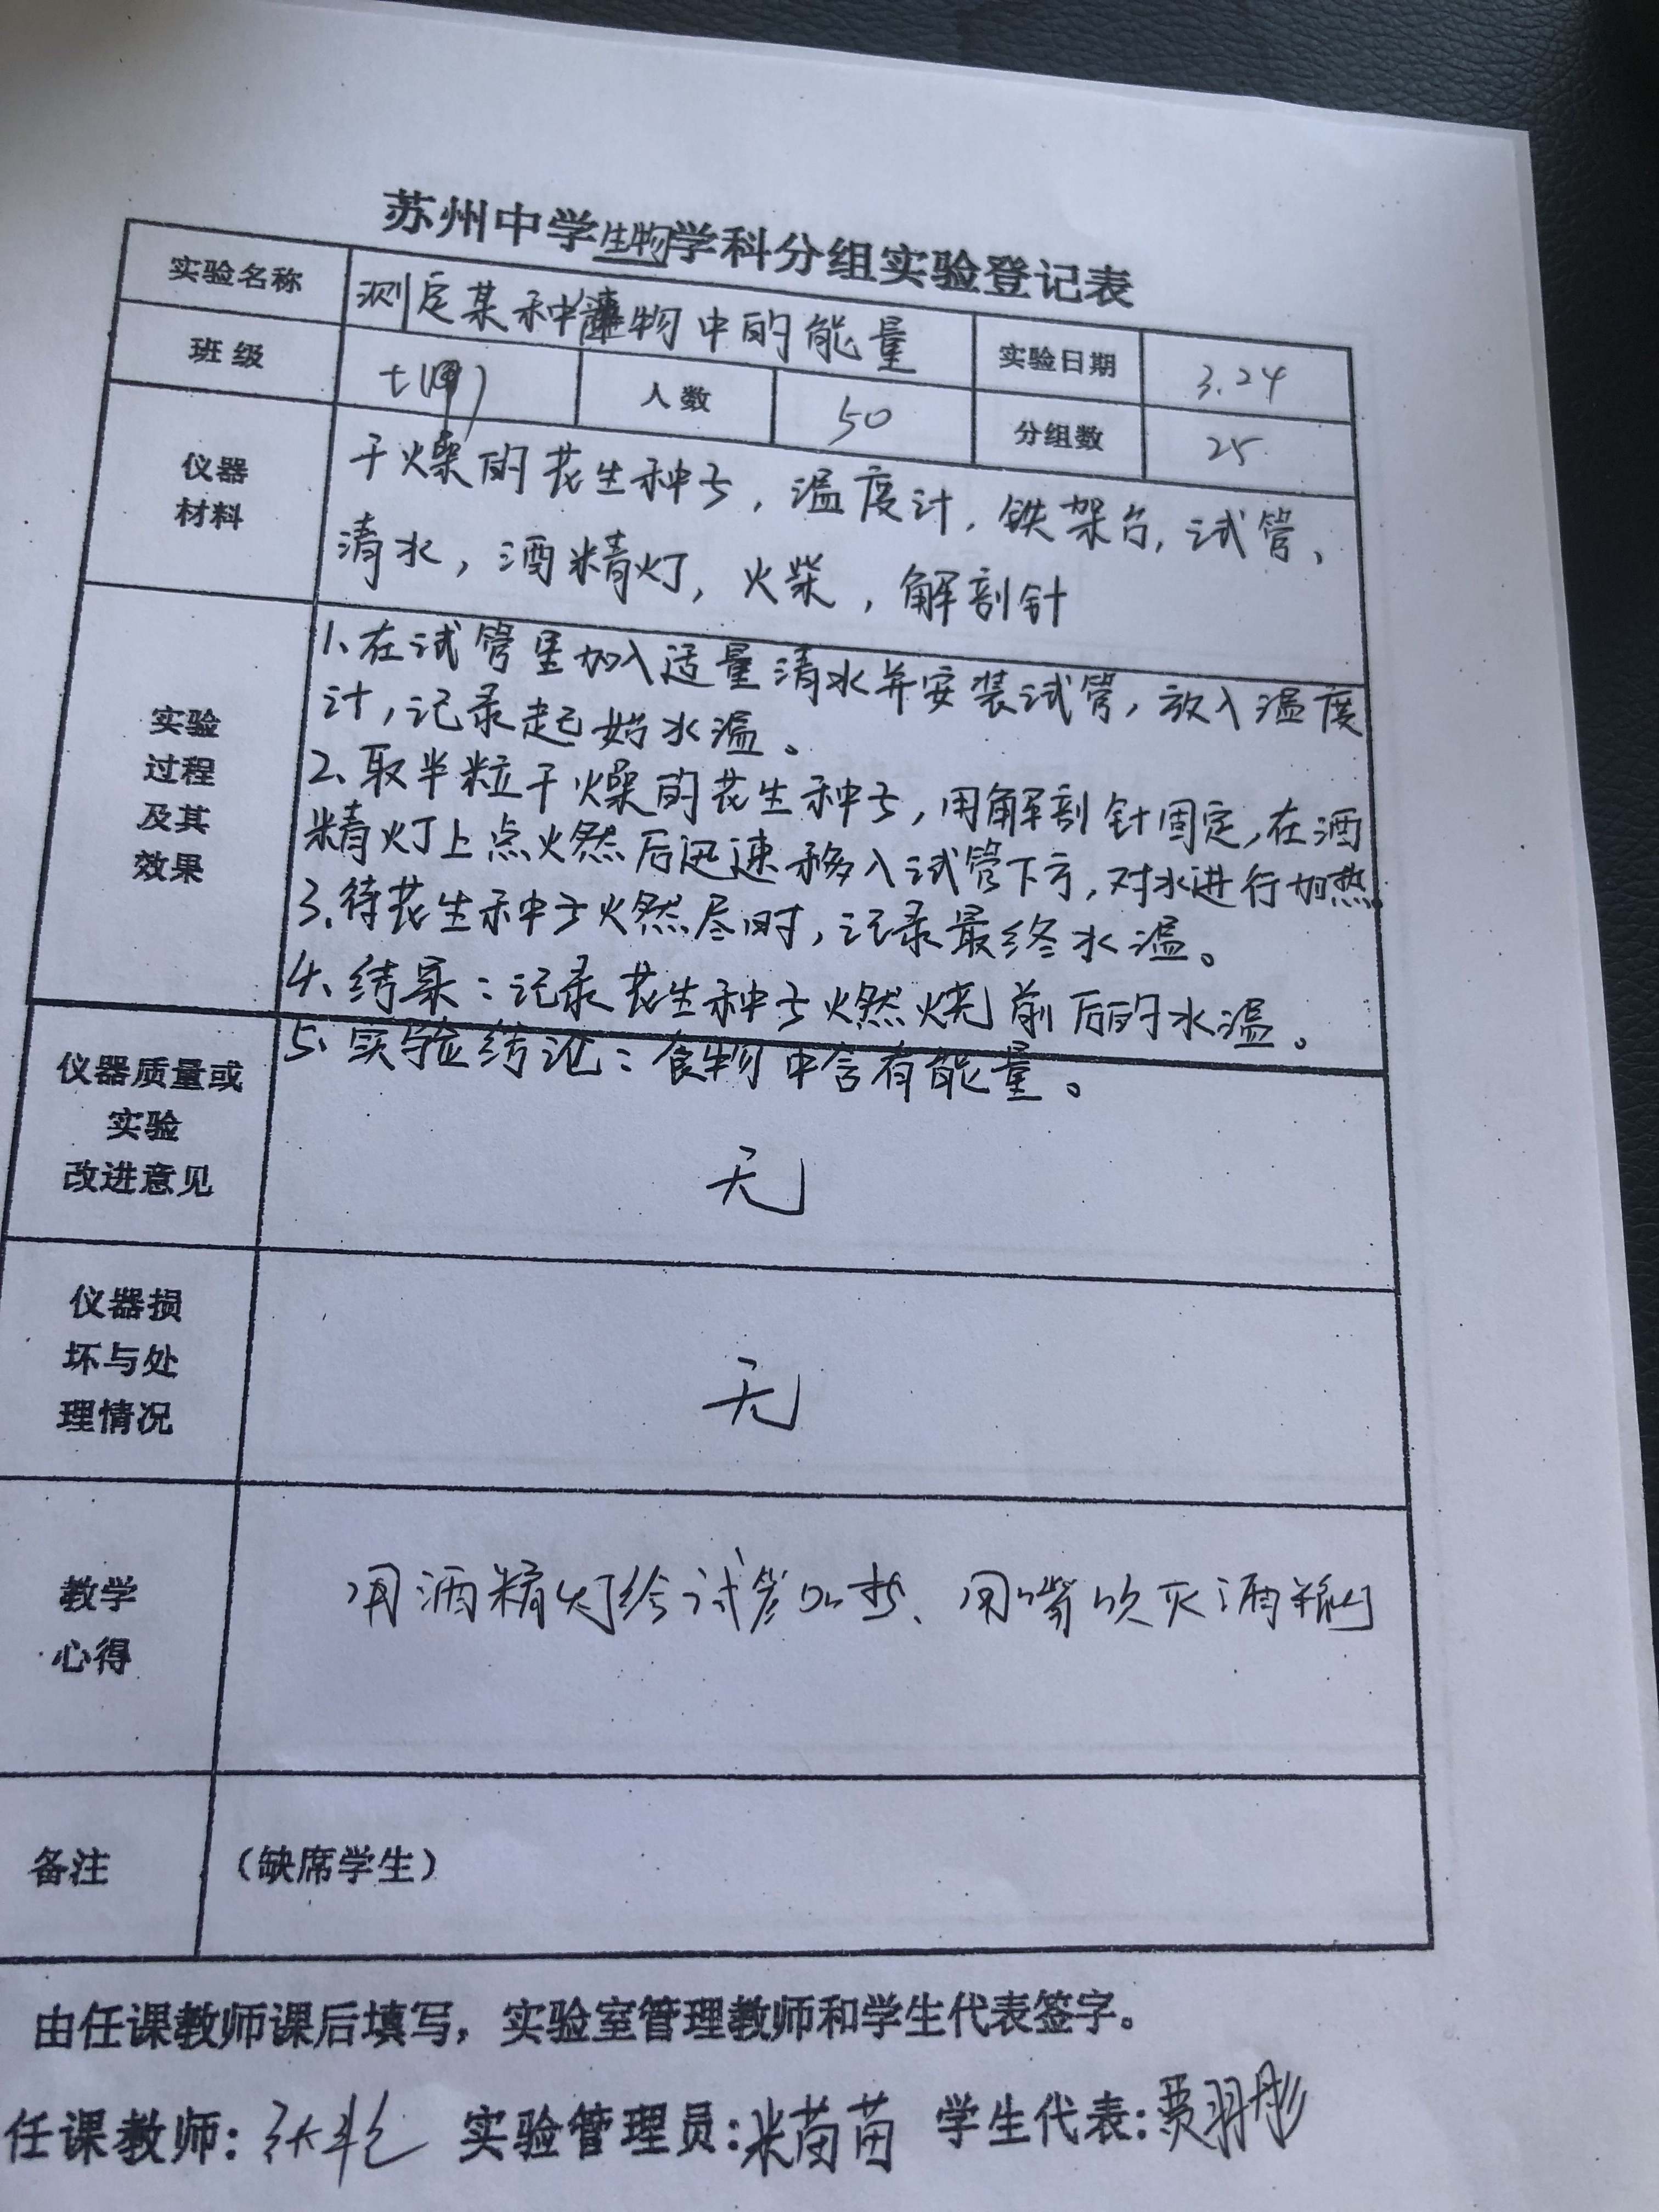 苏州中学生物学科分组实验登记表
实验名称 测定某种食物中的能量 实验日期 3.24
班级 七( ) 人数 50 分组数 25
仪器
材料
干燥的花生种子，温度计，铁架台，试管、
清水，酒精灯，火柴，解剖针
实验
过程
及其
效果
1、在试管里加入适量清水并安装试管，放入温度
计，记录起始水温。
2、取半粒干燥的花生种子，用解剖针固定，在酒
精灯上点火然后迅速移入试管下方，对水进行加热
3、待花生种子火然尽时，记录最终水温。
4、结果：记录花生种子燃烧前后的水温。
5、实验结论：食物中含有能量。
仪器质量或
实验
改进意见
无
仪器损
坏与处
理情况
无
教学
心得
用酒精灯给试管加热、用嘴吹灭酒精灯
备注 （缺席学生）
由任课教师课后填写，实验室管理教师和学生代表签字。
任课教师： 实验管理员：米苗苗 学生代表：贾羽彤